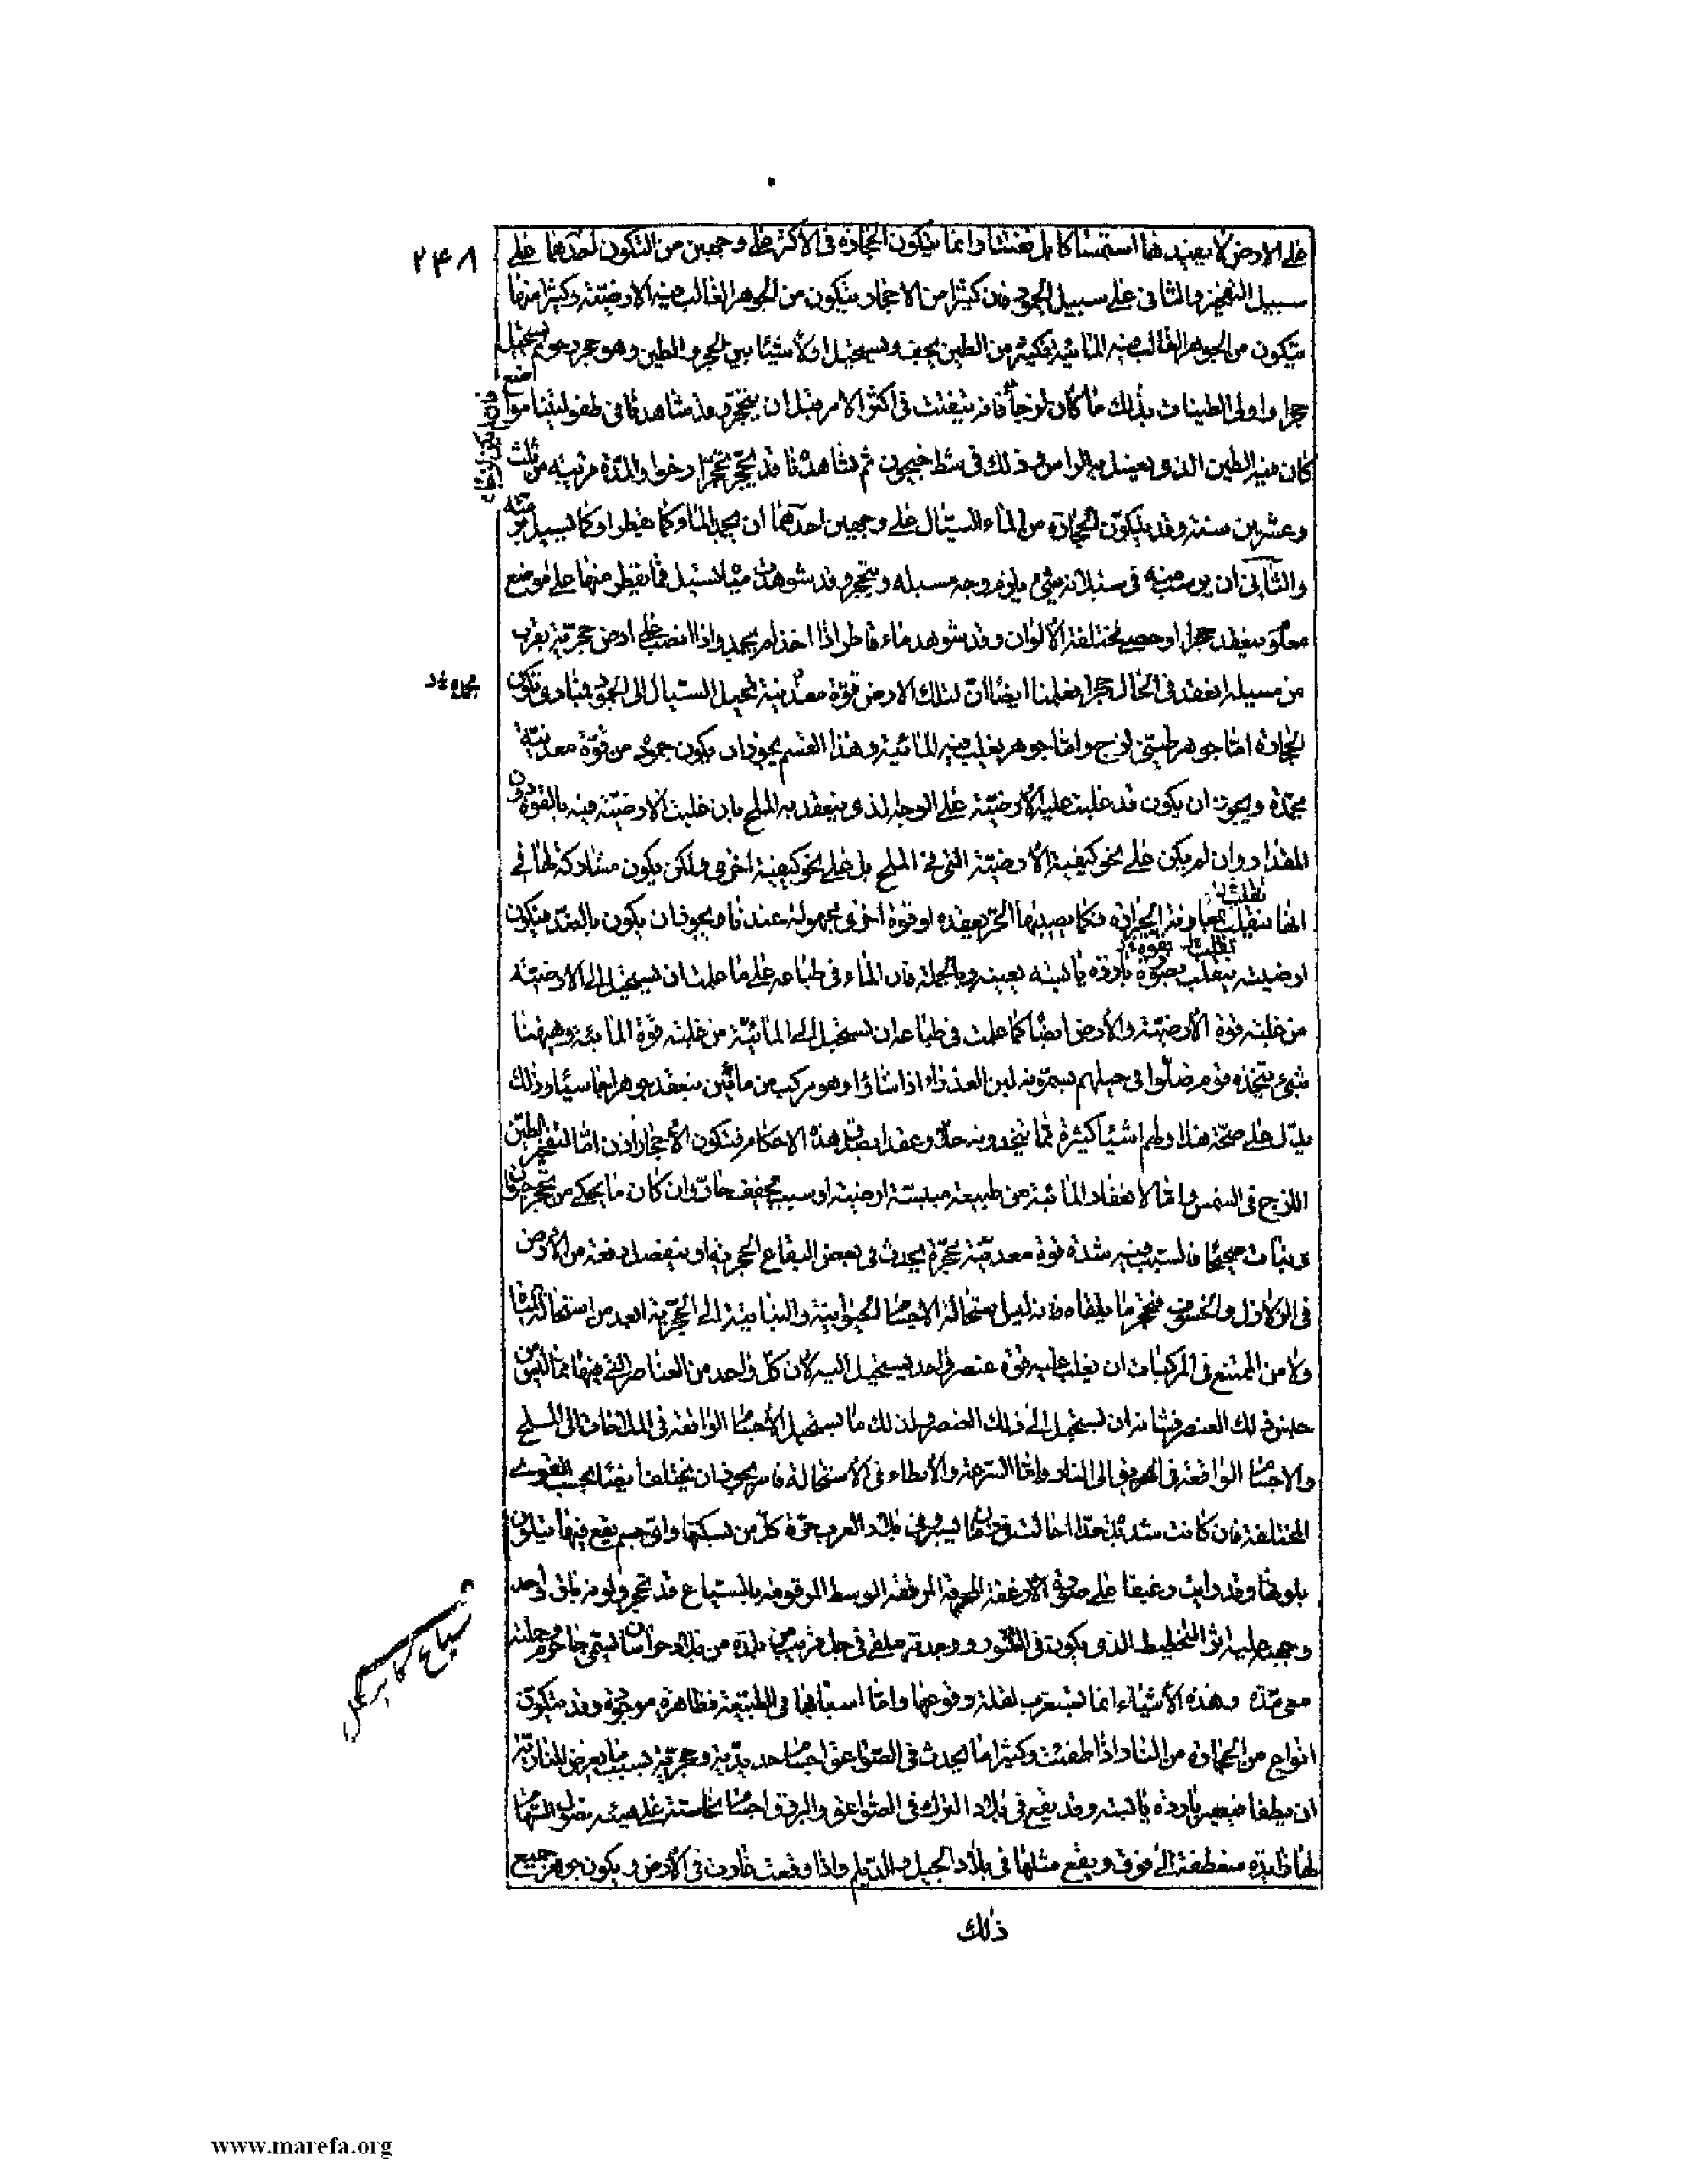 ٢٤٨
على الارض لا يفيدها استمساكا بل تفتتا وانما يتكون الحجارة فى الاكثر على وجهين من التكون احدهما على
سبيل التفخير والثانى على سبيل الجمود فان كثيرا من الاحجار يتكون من الجوهر الغالب فيه الارضية وكثيرا منها
يتكون من الجوهر الغالب فيه المائية فكثير من الطين يجف ويستحيل اولا شيئا بين الحجر والطين وهو حجر رخو ثم يستحيل
حجرا واولى الطينات بذلك ما كان لزجا فان لم يكن لزجا فانه يتفتت فى اكثر الامر قبل ان يتحجر وقد شاهدنا فى طفوليتنا مواضع
كان فيه الطين الذى يغسل به الراس وذلك فى شط جيحون ثم شاهدناه قد تحجر تحجرا رخوا والمدة قريبة من ثلث
وعشرين سنة وقد يتكون الحجارة من الماء السيال على وجهين احدهما ان يجمد الماء وكما يقطر او كما يسيل برمته
والثانى ان يرسب منه فى سيلانه شىء يلزم وجه مسيله ويتحجر وقد شوهدت مياه تسيل فما يقطر منها على موضع
معلوم ينعقد حجرا او حصى مختلفة الالوان وقد شوهد ماء قاطر اذا اخذ لم يجمد واذا انصب على ارض حجرية بقرب
من مسيله انعقد فى الحال حجرا فعلمنا ايضا ان لتلك الارض قوة معدنية تحيل السيال الى الجمود فمبادى تكون
الحجارة اما جوهر طينى لزج واما جوهر يغلب فيه المائية وهذا القسم يجوز ان يكون جموده من قوة معدنية
مجمدة ويجوز ان يكون قد غلبت عليه الارضية على الوجه الذى ينعقد به الملح بان غلبت الارضية فيه بالقوة دون
المقدار وان لم يكن على نحو كيفية الارضية التى فى الملح بل على نحو كيفية اخرى ولكن يكون مشاركة لها فى
انها تنقلب بمعاونة الحرارة فكما يصيبها الحر يعقده او قوة اخرى مجهولة عندنا ويجوز ان يكون بالضد فيكون
ارضيته يتغلب بقوة باردة يابسة يعينه وبالجملة فان الماء فى طباعه على ما علمت ان يستحيل الى الارضية
من غلبة قوة الارضية والارض ايضا كما علمت فى طباعه ان تستحيل الى المائية من غلبة قوة المائية وههنا
شىء يتخذه قوم ضلوا فى حيلهم يسمونه لبن العذراء اذا شاؤا وهو مركب من مائين ينعقد جوهرا جاسيا وذلك
يدل على صحة هذا ولهم اشياء كثيرة مما يتخذونه حلا وعقدا يصدق هذه الاحكام فتكون الاحجار اذن اما لتفخير الطين
اللزج فى الشمس واما لانعقاد المائية من طبيعة ميبسة ارضية او سبب مجفف حار وان كان ما يحكى من تحجر حيوان
ونبات صحيحا فالسبب فيه شدة قوة معدنية محجرة يحدث فى بعض البقاع الحجرية او ينفصل دفعة من الارض
فى الزلازل والخسوف فتحجر ما يلقاه فانه ليس استحالة الاجسام الحيوانية والنباتية الى الحجرية ابعد من استحالة المياه
ولا من الممتنع فى المركبات ان يغلب عليه قوة عنصر واحد يستحيل اليه لان كل واحد من العناصر التى فيها مما ليس من
جنس ذلك العنصر فشانه ان يستحيل الى ذلك العنصر ولذلك ما يستحيل الاجسام الواقعة فى الملاحات الى الملح
والاجسام الواقعة فى الحريق الى النار واما السرعة والابطاء فى الاستحالة فامر يجوز ان يختلف ايضا بحسب القوى
المختلفة فان كانت شديدة جدا احالت فى زمان يسير وفى بلاد العرب حرة كل من يسكنها واى جسم يقع فيها يتلون
بلونها وقد رايت رغيفا على صورة الارغفة المحرقة المرققة الوسط الموقوفة بالسباع قد تحجر ولونه باق واحد
وجهيه عليه اثر التخطيط الذى يكون فى التنور ووجدته ملقى فى جبل قريب من بلدة من بلاد خراسان تسمى جاجرم وحملته
معى مدة وهذه الاشياء انما تستغرب لقلة وقوعها واما اسبابها فى الطبيعة فظاهرة موجودة وقد يتكون
انواع من الحجارة من النار اذا طفئت وكثيرا ما يحدث فى الصواعق اجسام حديدية وحجرية بسبب ما يعرض للنارية
ان تطفا فيصير باردة يابسة وقد يقع فى بلاد الترك فى الصواعق والبروق اجسام نحاسية على هيئة نصول السهام
لها زائدة منعطفة الى فوق ويقع مثلها فى بلاد الجبل والديلم واذا وقعت غارت فى الارض ويكون جوهر جميع
ذلك
www.marefa.org